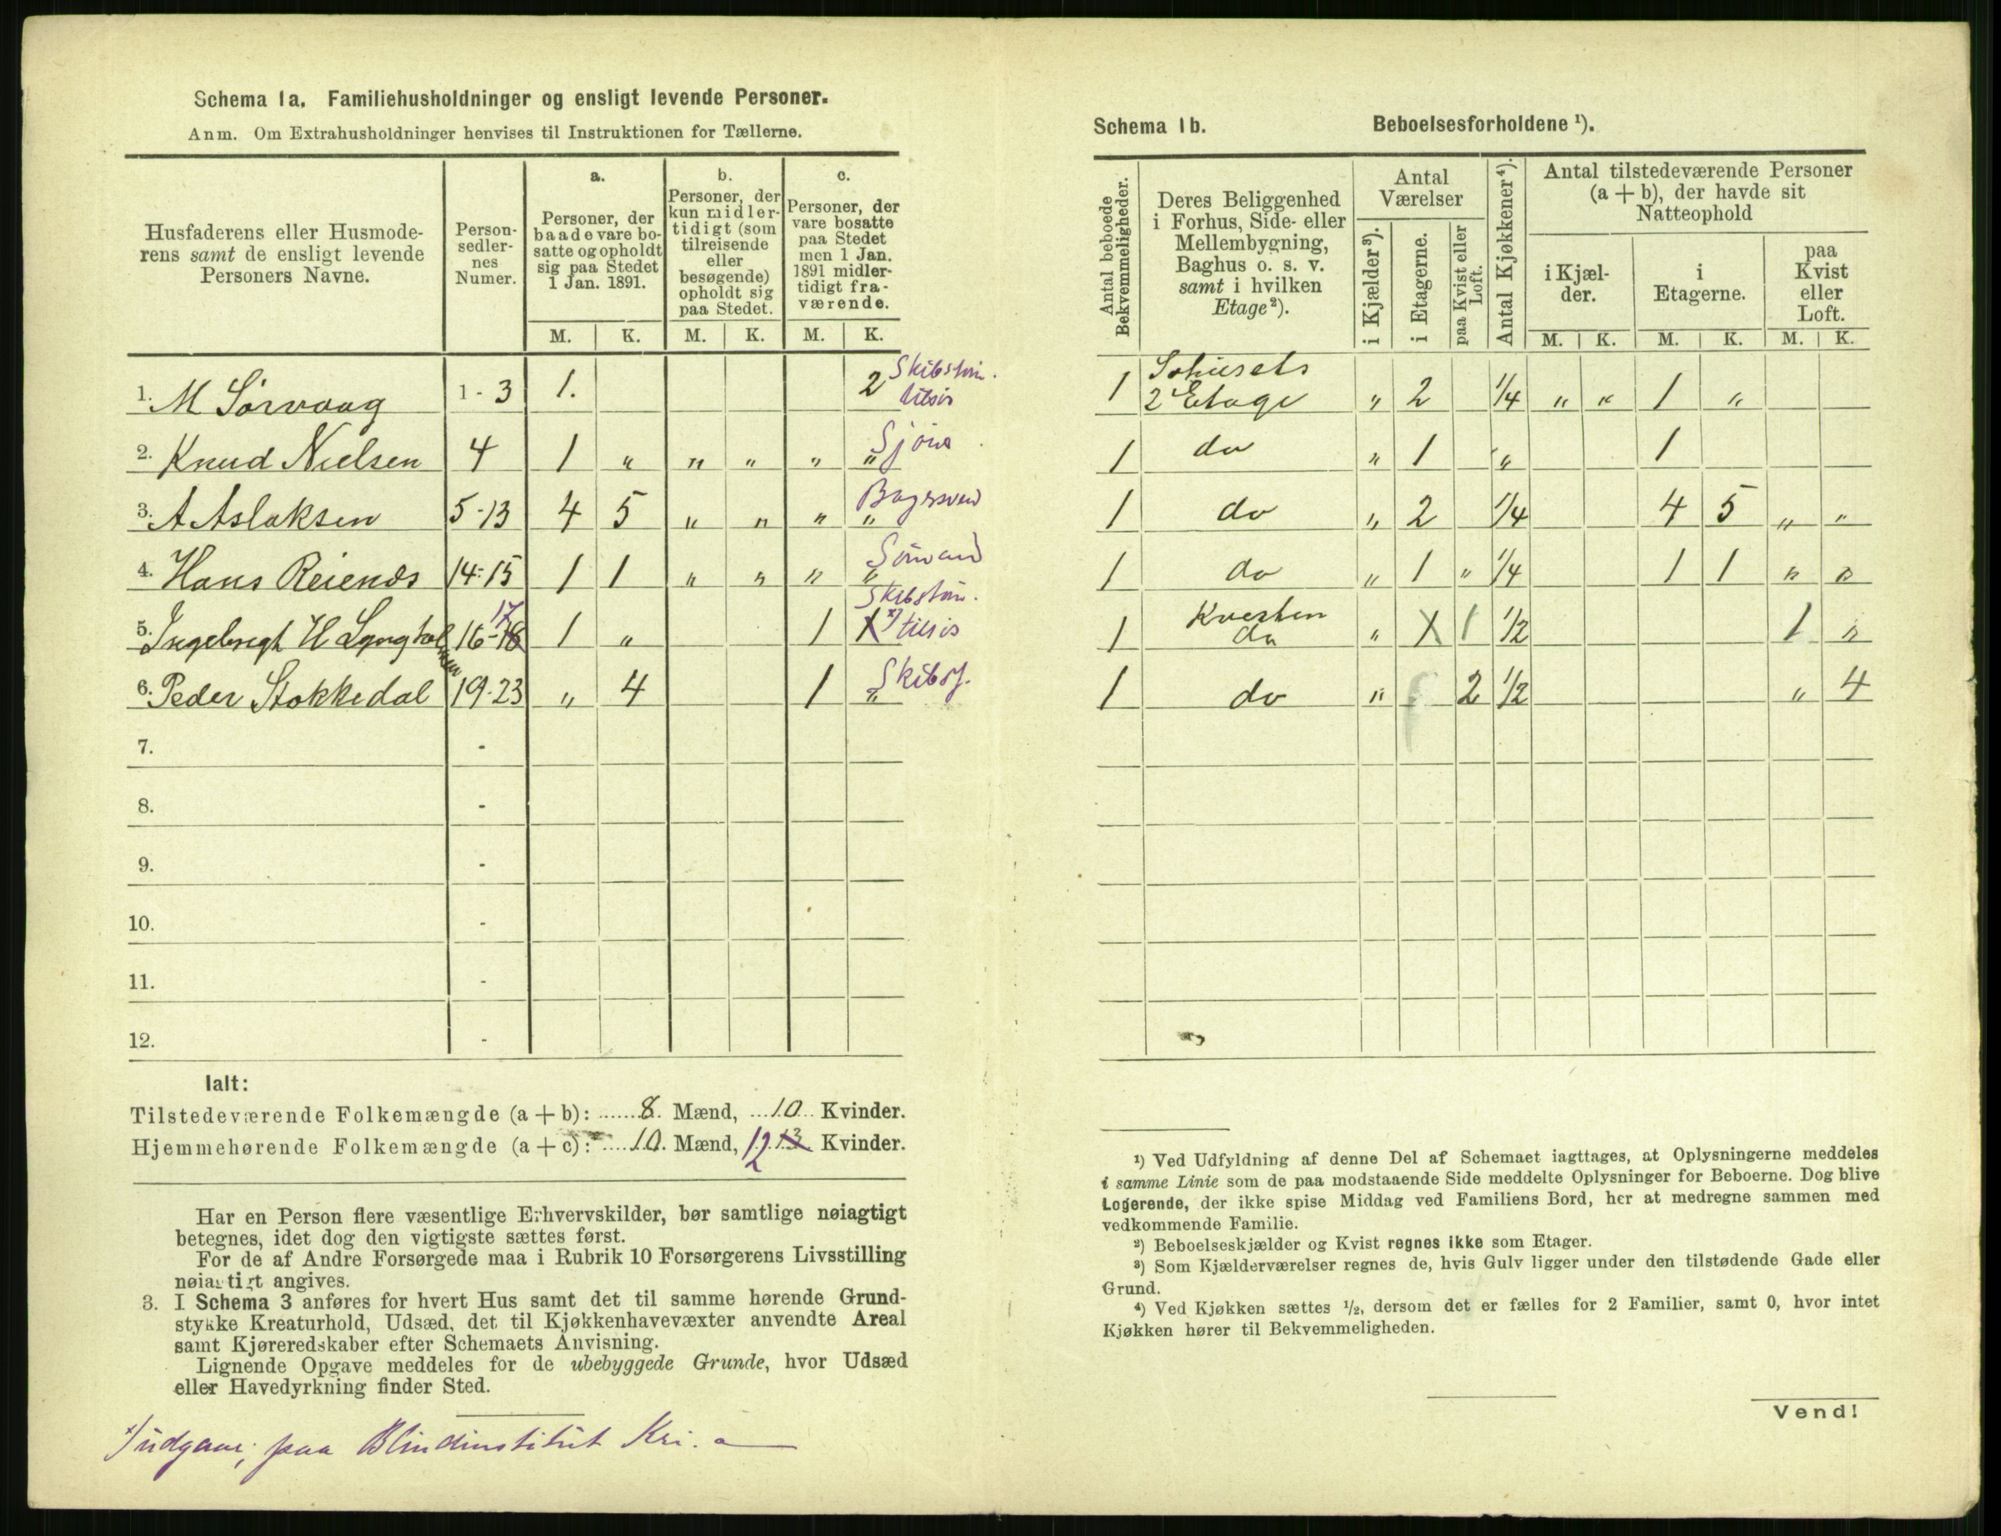 Schema 1a. Familiehusholdninger og ensligt levende Personer.
Anm. Om Extrahusholdninger henvises til Instruktionen for Tællerne.
Husfaderens eller Husmode-
rens samt de ensligt levende
Personers Navne.
Person-
sedler-
nes
Numer.
a.
Personer, der
baade vare bo-
satte og opholdt
sig paa Stedet
1 Jan. 1891.
b.
Personer, der
kun midler-
tidigt (som
tilreisende
eller
besøgende)
opholdt sig
paa Stedet.
c.
Personer, der
vare bosatte
paa Stedet
men 1 Jan.
1891 midler-
tidigt fra-
værende.
M. K. M. K. M. K.
1. M Sörvaag 1-3 1. 2 Skibstøm.
2. Knud Nielsen 4 1 „ „ „ „ „
3. A Aslaksen 5-13 4 5 „ „ „ „ Bagersvend
4. Hans Reiends 14-15 1 1 „ „ „ „
5. Ingebrigt H Lyngholmen 16-18 17 1 „ 1 1 x) Skibstøm.
6. Peder Stokkedal 19-23 „ 4 1 „ Skibsf.
7. -
8. -
9. -
10. -
11. -
12. -
Ialt:
Tilstedeværende Folkemængde (a + b): 8 Mænd, 10 Kvinder.
Hjemmehørende Folkemængde (a + c): 10 Mænd, 12 13 Kvinder.
Har en Person flere væsentlige Erhvervskilder, bør samtlige nøiagtigt
betegnes, idet dog den vigtigste sættes først.
For de af Andre Forsørgede maa i Rubrik 10 Forsørgerens Livsstilling
nøiagtigt angives.
3. I Schema 3 anføres for hvert Hus samt det til samme hørende Grund-
stykke Kreaturhold, Udsæd, det til Kjøkkenhavevæxter anvendte Areal
samt Kjøreredskaber efter Schemaets Anvisning.
Lignende Opgave meddeles for de ubebyggede Grunde, hvor Udsæd
eller Havedyrkning finder Sted.
x) udgaar, paa Blindinstitut Kri.a
Schema 1b. Beboelsesforholdene ¹).
Antal beboede
Bekvemmeligheder.
Deres Beliggenhed
i Forhus, Side- eller
Mellembygning,
Baghus o. s. v.
samt i hvilken
Etage²).
Antal
Værelser
i Kjælder³).
i Etagerne.
paa Kvist eller
Loft.
Antal Kjøkkener⁴).
Antal tilstedeværende Personer
(a + b), der havde sit
Natteophold
i Kjæl-
der.
i
Etagerne.
paa
Kvist
eller
Loft.
M. K. M. K. M. K.
1 2 Etage „ 2 1/4 „ „ 1 „
1 do „ 1 „ 1
1 do „ 2 1/4 4 5 „ „
1 do „ 1 „ 1/4 1 1 „ „
1 Kvisten do „ 1 1 1/2 1 „
1 do „ 2 1/2 „ 4
¹) Ved Udfyldning af denne Del af Schemaet iagttages, at Oplysningerne meddeles
i samme Linie som de paa modstaaende Side meddelte Oplysninger for Beboerne. Dog blive
Logerende, der ikke spise Middag ved Familiens Bord, her at medregne sammen med
vedkommende Familie.
²) Beboelseskjælder og Kvist regnes ikke som Etager.
³) Som Kjælderværelser regnes de, hvis Gulv ligger under den tilstødende Gade eller
Grund.
⁴) Ved Kjøkken sættes ½, dersom det er fælles for 2 Familier, samt 0, hvor intet
Kjøkken hører til Bekvemmeligheden.
Vend!